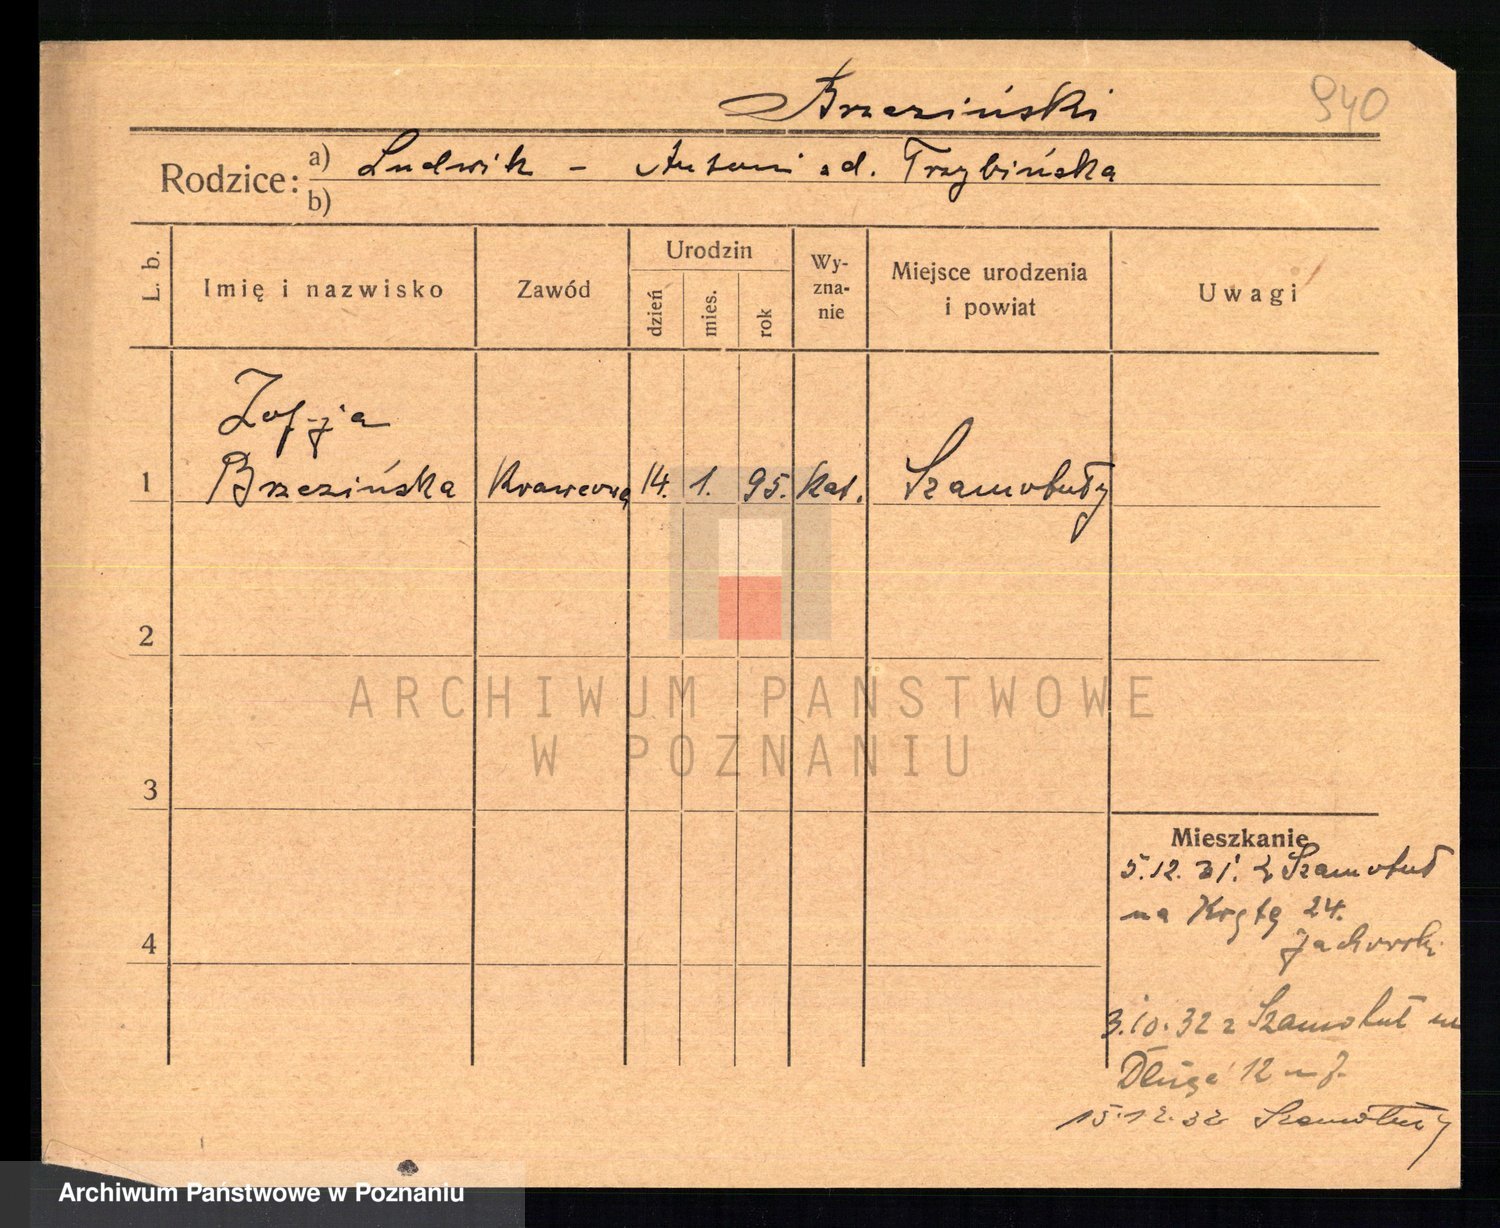 Brzeziński
940
Rodzice: a) Ludwik - Antoni a d. Trzybińska
b)
L. b.
Imię i nazwisko
Zawód
Urodzin
dzień
mies.
rok
Wy-
zna-
nie
Miejsce urodzenia
i powiat
Uwagi
Zofja
1 Brzezińska Krawcowa 14. 1. 95. Kat. Szamotuły
2
3
4
Mieszkanie
5.12.31. z Szamotuł
na Krętę 24.
3.10.32 z Szamotuł
Długa 12
15.12.32 Szamotuły
ARCHIWUM PANSTWOWE
W POZNANIU
Archiwum Państwowe w Poznaniu